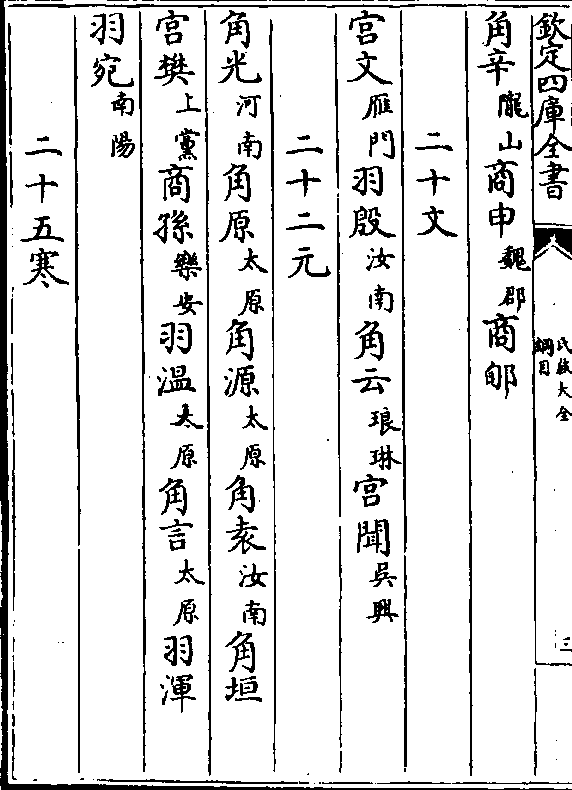 欽定四庫全書
氏族大全
綱目
三
角辛隴山商申魏郡商郇
二十文
宫文雁門羽殷汝南角云琅琳宫聞吳興
二十二元
角光河南角原太原角源太原角袁汝南角垣
宫樊上黨商孫樂安羽温太原角言太原羽渾
羽宛南陽
二十五寒